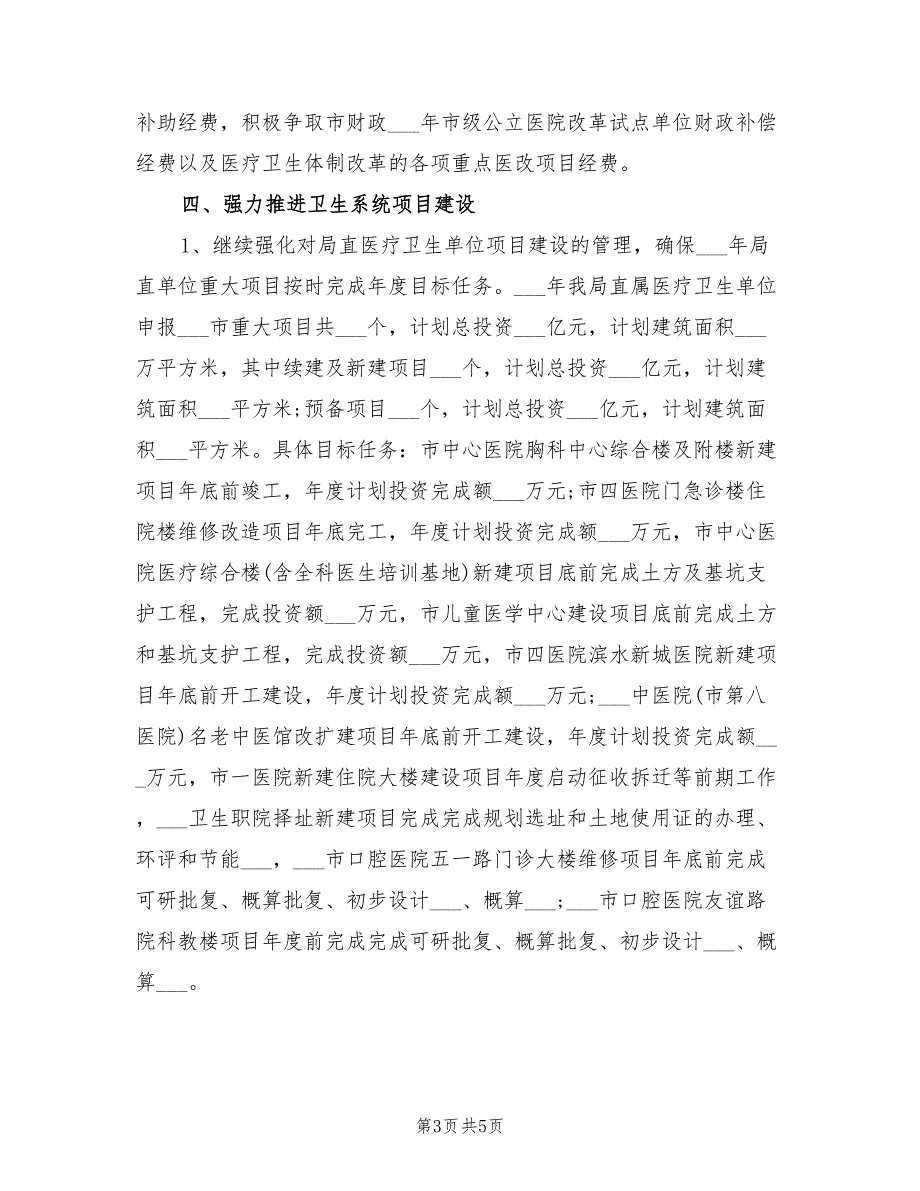 补助经费，积极争取市财政___年市级公立医院改革试点单位财政补偿
经费以及医疗卫生体制改革的各项重点医改项目经费。
四、强力推进卫生系统项目建设
1、继续强化对局直医疗卫生单位项目建设的管理，确保___年局
直单位重大项目按时完成年度目标任务。___年我局直属医疗卫生单位
申报___市重大项目共___个，计划总投资___亿元，计划建筑面积___
万平方米，其中续建及新建项目___个，计划总投资___亿元，计划建
筑面积___平方米;预备项目___个，计划总投资___亿元，计划建筑面
积___平方米。具体目标任务：市中心医院胸科中心综合楼及附楼新建
项目年底前竣工，年度计划投资完成额___万元;市四医院门急诊楼住
院楼维修改造项目年底完工，年度计划投资完成额___万元，市中心医
院医疗综合楼(含全科医生培训基地)新建项目底前完成土方及基坑支
护工程，完成投资额___万元，市儿童医学中心建设项目底前完成土方
和基坑支护工程，完成投资额___万元，市四医院滨水新城医院新建项
目年底前开工建设，年度计划投资完成额___万元;___中医院(市第八
医院)名老中医馆改扩建项目年底前开工建设，年度计划投资完成额__
_万元，市一医院新建住院大楼建设项目年度启动征收拆迁等前期工作
，___卫生职院择址新建项目完成完成规划选址和土地使用证的办理、
环评和节能___，___市口腔医院五一路门诊大楼维修项目年底前完成
可研批复、概算批复、初步设计___、概算___;___市口腔医院友谊路
院科教楼项目年度前完成完成可研批复、概算批复、初步设计___、概
算___。
第3页 共5页